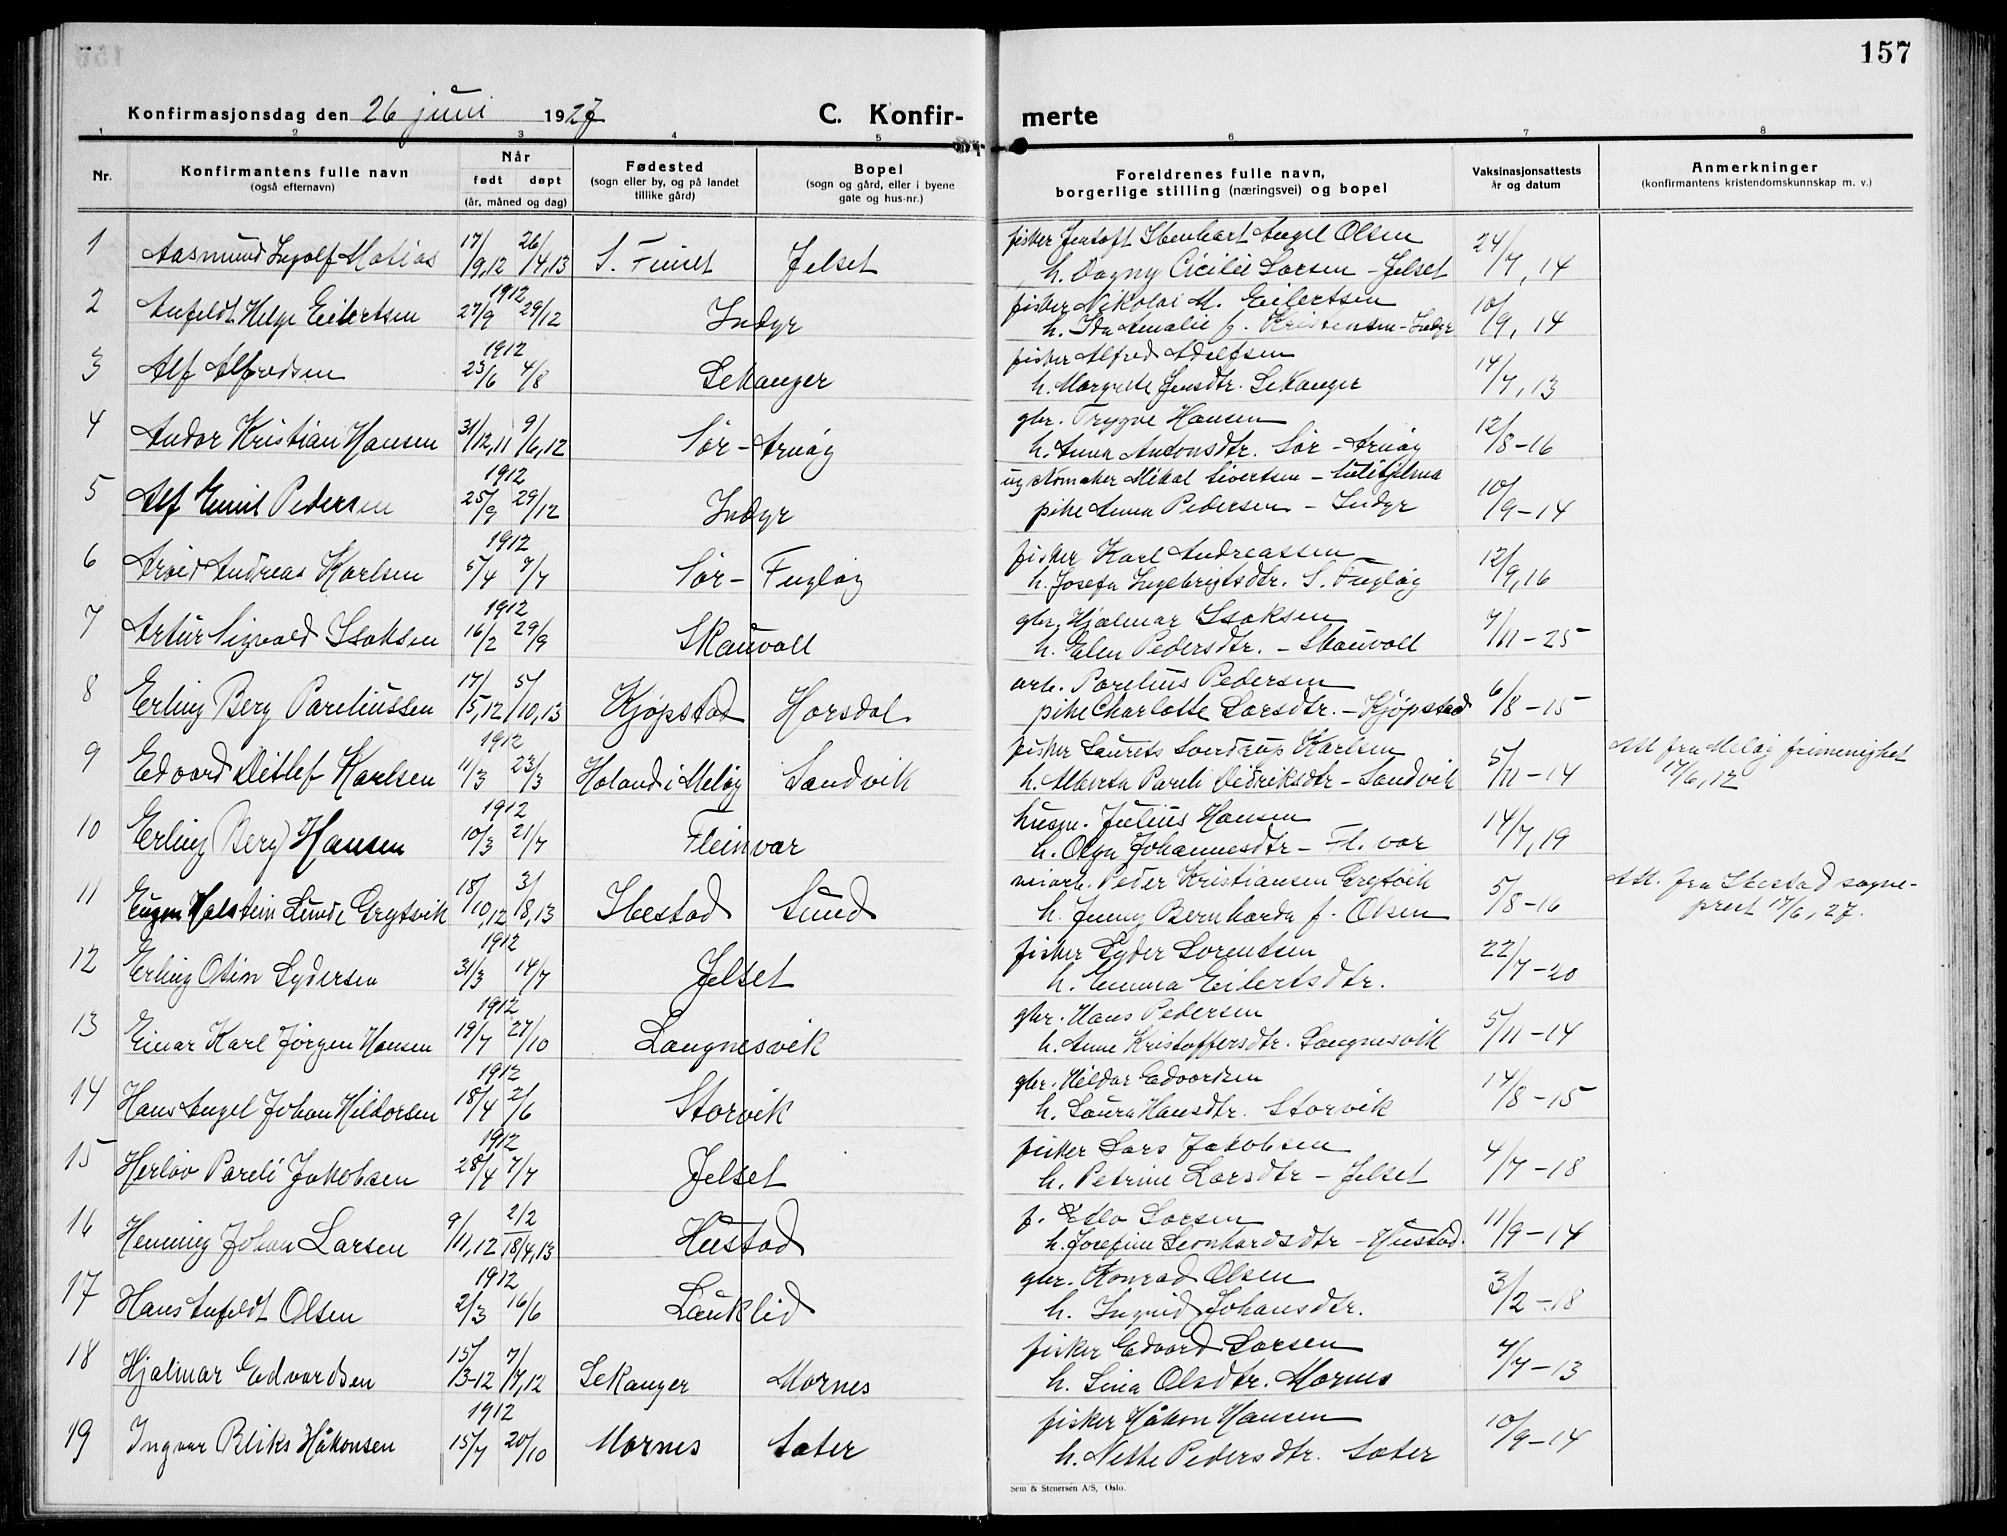 157
Konfirmasjonsdag den 26 juni 1927
C. Konfir- merte
1 2 3 4 5 6 7 8
Nr.
Konfirmantens fulle navn
(også efternavn)
Når
født døpt
(år, måned og dag)
Fødested
(sogn eller by, og på landet
tillike gård)
Bopel
(sogn og gård, eller i byene
gate og hus-nr.)
Foreldrenes fulle navn,
borgerlige stilling (næringsvei) og bopel
Vaksinasjonsattests
år og datum
Anmerkninger
(konfirmantens kristendomskunnskap m. v.)
1 Aasmund Ingolf Matias 17/9,12 26/4,13 S. Finset Jelset
fisker Jentoft Ebenhart Angel Olsen 24/7, 14
h. Dagny Cicilie Larsen - Jelset
2 Anfeldt Helge Eilertsen 1912 27/9 29/12 Indyr
fisker Nikolai M. Eilertsen 10/9, 14
h. Ida Amalie f. Kristensen - Indyr
3 Alf Alfredsen 1912 23/6 4/8 Sekanger
fisker Alfred Adolfsen 14/7, 13
h. Margrete Jensdtr. Sekanger
4 Andor Kristian Hansen 31/12,11 9/6,12 Sør - Arnøy
gbr. Trygve Hansen 12/8-16
h. Anna Antonsdtr. Sør - Arnøy
5 Alf Emil Pedersen 1912 25/9 29/12 Indyr
ug skomaker Mikal Sivertsen - Sulitjelma 10/9-14
pike Anna Pedersen - Indyr
6 Arvid Andreas Karlsen 1912 5/4 7/7 Sør - Fugløy
fisker Karl Andreassen 12/9, 16
h. Josefa Ingebrigtsdtr. S. Fugløy
7 Artur Sigvald Isaksen 1912 16/2 29/9 Skauvoll
gbr. Hjalmar Isaksen 7/11-25
h. Elen Pedersdtr. - Skauvoll
8 Erling Berg Pareliussen 17/5,12 5/10,13 Kjøpstad Horsdal
arb. Parelius Pedersen 6/8-15
pike Charlotte Larsdtr. - Kjøpstad
9 Edvard Ditlef Karlsen 1912 11/3 23/3 Holand i Meløy Sandvik
fisker Laurets Sverdrup Karlsen 5/11-14 Att. fra Meløy frimenighet
h. Alberta Pareli Didriksdtr - Sandvik 17/6, 12
10 Erling Berg Hansen 1912 10/3 21/7 Fleinvær
husm. Julius Hansen 14/7, 19
h. Olga Johannesdtr - Fl. vær
11 Eugen Halstein Lunde Grytvik 18/10,12 3/8,13 Ibestad Sund
veiarb. Peder Kristiansen Grytvik 5/8-16 Att. fra Ibestad sogne-
h. Jenny Bernharda f. Olsen prest 17/6, 27.
12 Erling Otin Lydersen 1912 31/3 14/7 Jelset
fisker Lyder Lorentsen 22/7-20
h. Emma Eilertsdtr.
13 Einar Karl Jørgen Hansen 1912 19/7 27/10 Langnesvik
gbr. Hans Pedersen 5/11-14
h. Anne Kristoffersdtr. Langnesvik
14 Hans Angel Johan Hildorsen 1912 18/4 2/6 Storvik
gbr. Hildor Edvardsen 14/8-15
h. Laura Hansdtr. Storvik
15 Herlov Pareli Jakobsen 1912 28/4 7/7 Jelset
fisker Lars Jakobsen 4/7-18
h. Petrine Larsdtr - Jelset
16 Henning Johan Larsen 9/11,12 2/2 18/4,13 Hustad
f. Larsen 11/9-14
h. Josefine Leonhardsdtr - Hustad.
17 Hans Anfeldt Olsen 1912 2/3 16/6 Lauklid
gbr. Konrad Olsen 3/2-18
h. Ingrid Johansdtr.
18 Hjalmar Edvardsen 15/3-12 7/7,12 Sekanger Mornes
fisker Edvard Larsen 4/7-13
h. Lina Olsdtr. Mornes
19 Ingvar Bliks Håkonsen 1912 15/7 20/10 Mornes Sæter
fisker Håkon Hansen 10/9-14
h. Nette Pedersdtr. Sæter
Sem & Stenersen A/S, Oslo.